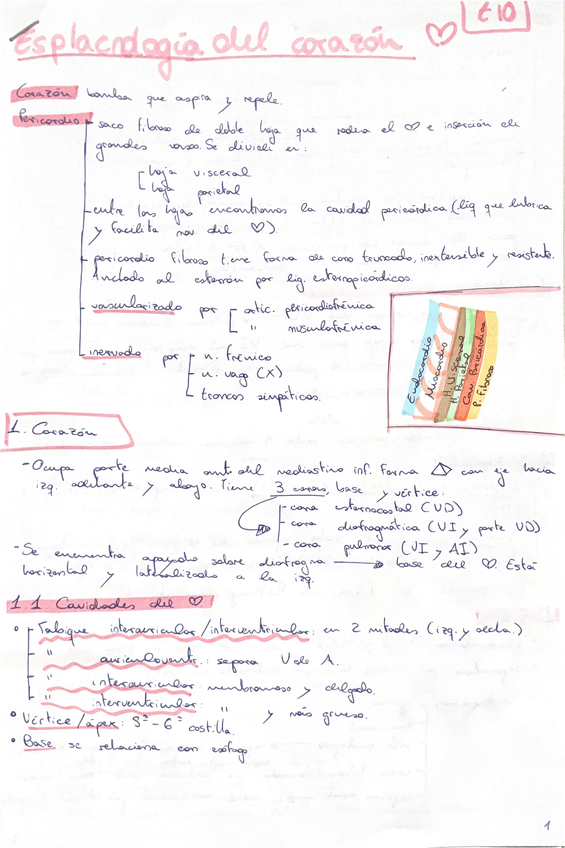 t10
Esplacnología del corazón ♡
Corazón bomba que aspira y repele.
Pericardio saco fibroso de doble hoja que rodea el ♡ e inserción de
grandes vasos. Se divide en:
hoja visceral
hoja parietal
entre las hojas encontramos la cavidad pericárdica (líq que lubrica
y facilita mov. del ♡).
pericardio fibroso tiene forma de cono truncado, inextensible y resistente.
Anclado al esternón por lig. esternopicárdicos.
vascularizado por artic. pericardiofrénica
" musculofrénica
inervado por n. frénico
n. vago (X)
troncos simpáticos.
Endocardio
Miocardio
H. Visceral
H. Parietal
Cav. Pericárdica
P. Fibroso
1. Corazón
- Ocupa parte media ant del mediastino inf. Forma △ con eje hacia
izq. adelante y abajo. Tiene 3 caras, base y vértice.
- cara esternocostal (VD)
- cara diafragmática (VI y parte VD)
- cara pulmonar (VI y AI)
- Se encuentra apoyado sobre diafragma → base del ♡. Está
horizontal y lateralizado a la izq.
1.1 Cavidades del ♡
• Tabique interauricular/interventricular: en 2 mitades (izq. y decha.)
" auriculoventr.: separa V de A.
" interauricular: membranoso y delgado.
" interventricular: " y más grueso.
• Vértice/ápex: 5º-6º costilla.
• Base se relaciona con esófago
1